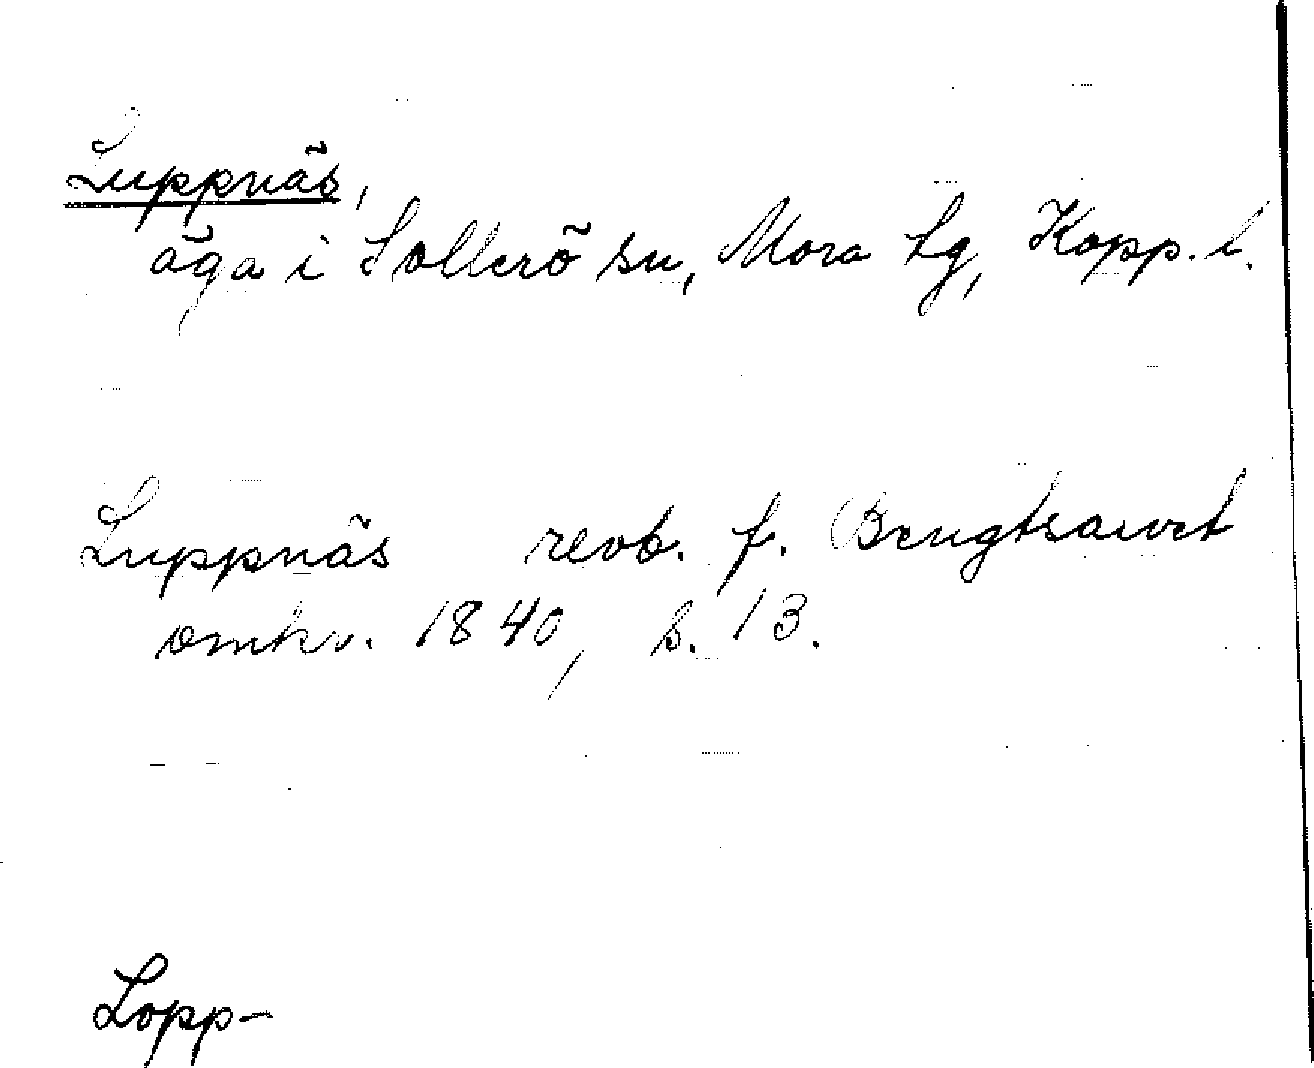 Luppnäs,
äga i Sollerö sn, Mora tg, Kopp. l.
Luppnäs revb. f. Bengtsarvet
omkr. 1840, s. 13.
Lopp-